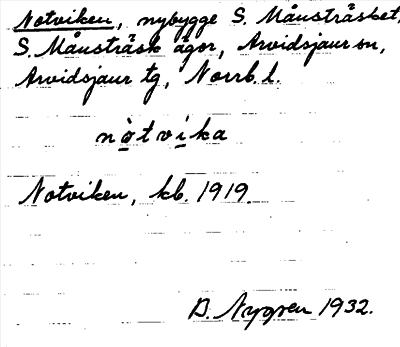 Notviken, nybygge S. Månsträsket,
S. Månsträsk ägor, Arvidsjaur sn,
Arvidsjaur tg, Norrb. l.
nòtvika
Notviken, kb. 1919.
D. Nygren 1932.